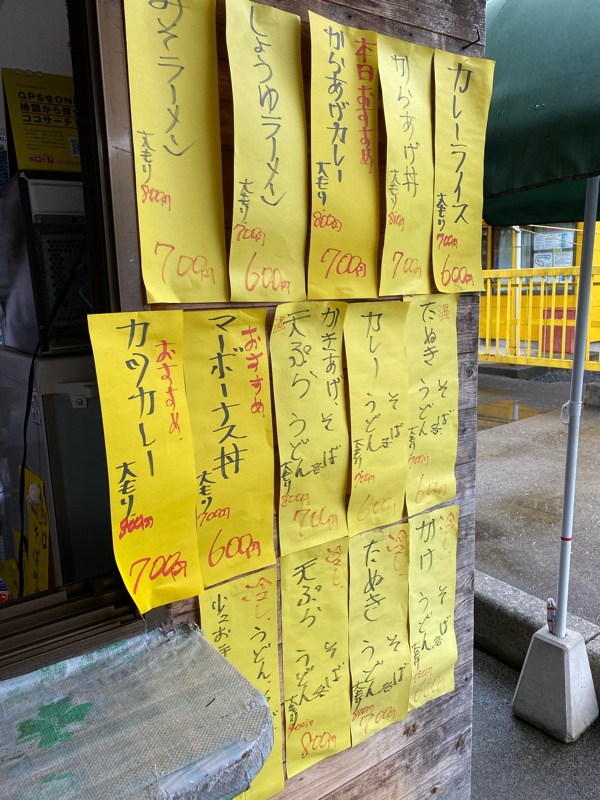 カレーライス
大もり
700円
600円
からあげ丼
大もり
800円
700円
本日おすすめ
からあげカレー
大もり
800円
700円
しょうゆラーメン
大もり
700円
600円
みそラーメン
大もり
800円
700円
温
たぬき
そば
うどん
大もり
700円
600円
カレー
そば
うどん
大もり
700円
600円
温
かきあげ
天ぷら
そば
うどん
大もり
800円
700円
おすすめ
マーボーナス丼
大もり
700円
600円
おすすめ
カツカレー
大もり
800円
700円
冷し
かけ
そば
うどん
大もり
600円
冷し
たぬき
そば
うどん
大もり
800円
700円
冷し
天ぷら
そば
うどん
大もり
900円
800円
冷し
うどん
GPSをON
地図から
ココサーチ